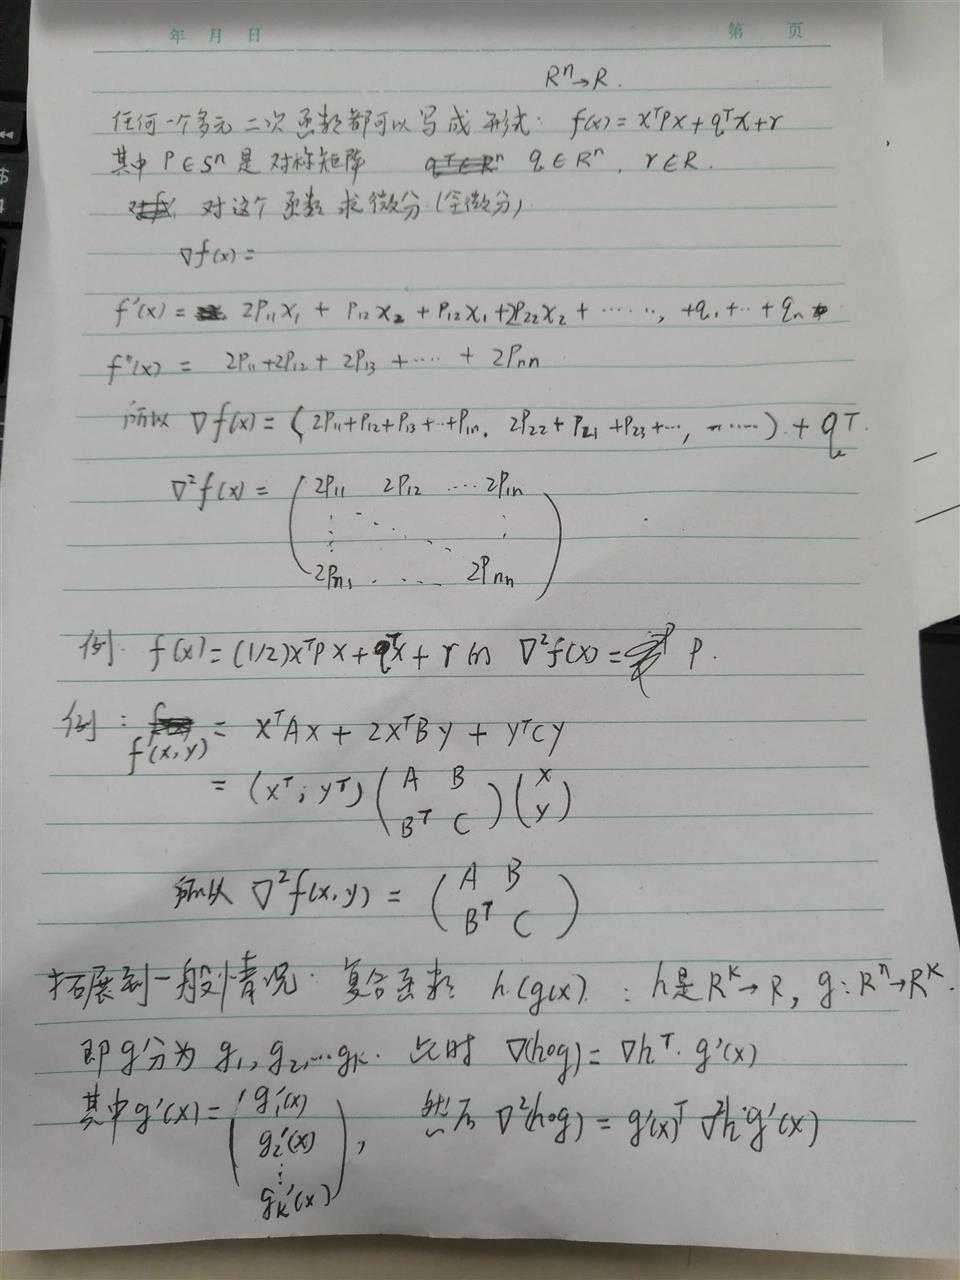 年 月 日 第 页
Rⁿ→R.
任何一个多元二次函数都可以写成形式: f(x) = xᵀPx + qᵀx + r
其中 P∈Sⁿ 是对称矩阵 q∈Rⁿ, r∈R.
对这个函数求微分(全微分)
∇f(x) =
f'(x) = 2P₁₁x₁ + P₁₂x₂ + P₁₂x₁ + 2P₂₂x₂ + ······, +q₁+··+qₙ
f''(x) = 2P₁₁+2P₁₂+2P₁₃+····+ 2Pₙₙ
所以 ∇f(x) = (2P₁₁+P₁₂+P₁₃+··+P₁ₙ, 2P₂₂+P₂₁+P₂₃+···, ······) + qᵀ.
∇²f(x) = ( 2P₁₁ 2P₁₂ ···· 2P₁ₙ
2Pₙ₁ ····· 2Pₙₙ )
例. f(x) = (1/2)xᵀPx + qᵀx + r 的 ∇²f(x) = P.
例: f(x,y) = xᵀAx + 2xᵀBy + yᵀCy
= (xᵀ; yᵀ) ( A B
Bᵀ C ) ( x
y )
所以 ∇²f(x,y) = ( A B
Bᵀ C )
拓展到一般情况: 复合函数 h(g(x)) : h是Rᴷ→R, g: Rⁿ→Rᴷ.
即g分为 g₁, g₂, ···gₖ. 此时 ∇(h∘g) = ∇hᵀ· g'(x)
其中g'(x) = ( g₁'(x)
g₂'(x)
⋮
gₖ'(x) ), 然后 ∇²(h∘g) = g'(x)ᵀ ∇²h·g'(x)